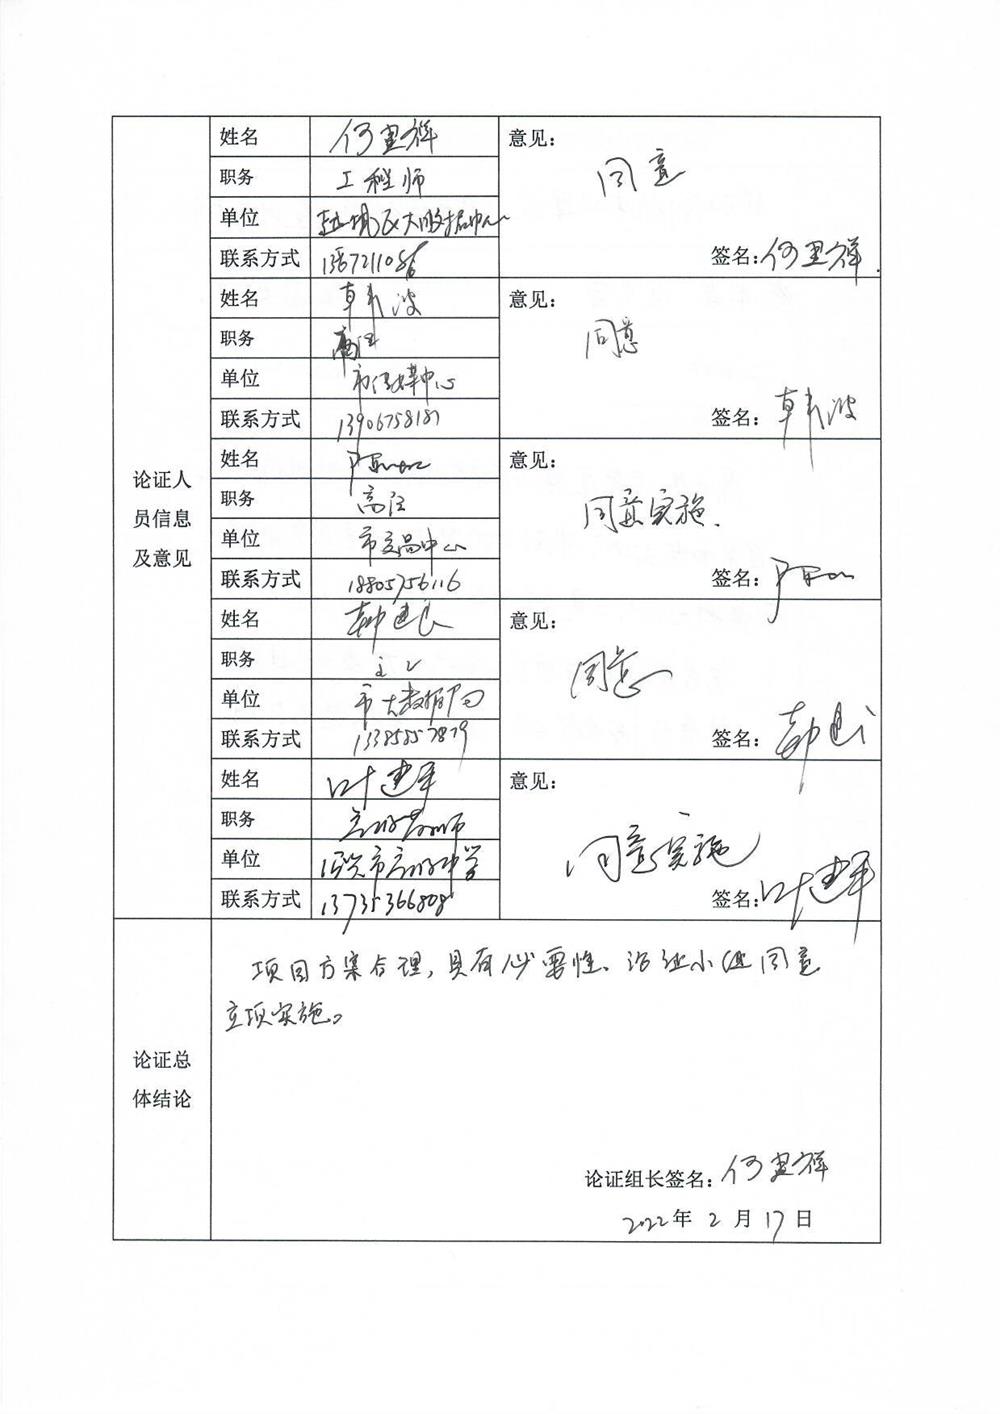 姓名 何里祥 意见：
同意
职务 工程师
单位
联系方式 签名：何里祥
姓名 韩波 意见：
同意
职务 高工
单位 市传媒中心
联系方式 13906758187 签名：韩波
姓名 意见：
同意实施.
职务 高工
单位 市交易中心
联系方式 18805756116 签名：
姓名 意见：
同意
职务
单位 市大数据局
联系方式 13385857879 签名：
姓名 叶建军 意见：
同意实施
职务
单位
联系方式 13735366808 签名：叶建军
论证人
员信息
及意见
项目方案合理，具有必要性、论证小组同意
立项实施。
论证总
体结论
论证组长签名：何里祥
2022年 2 月 17 日